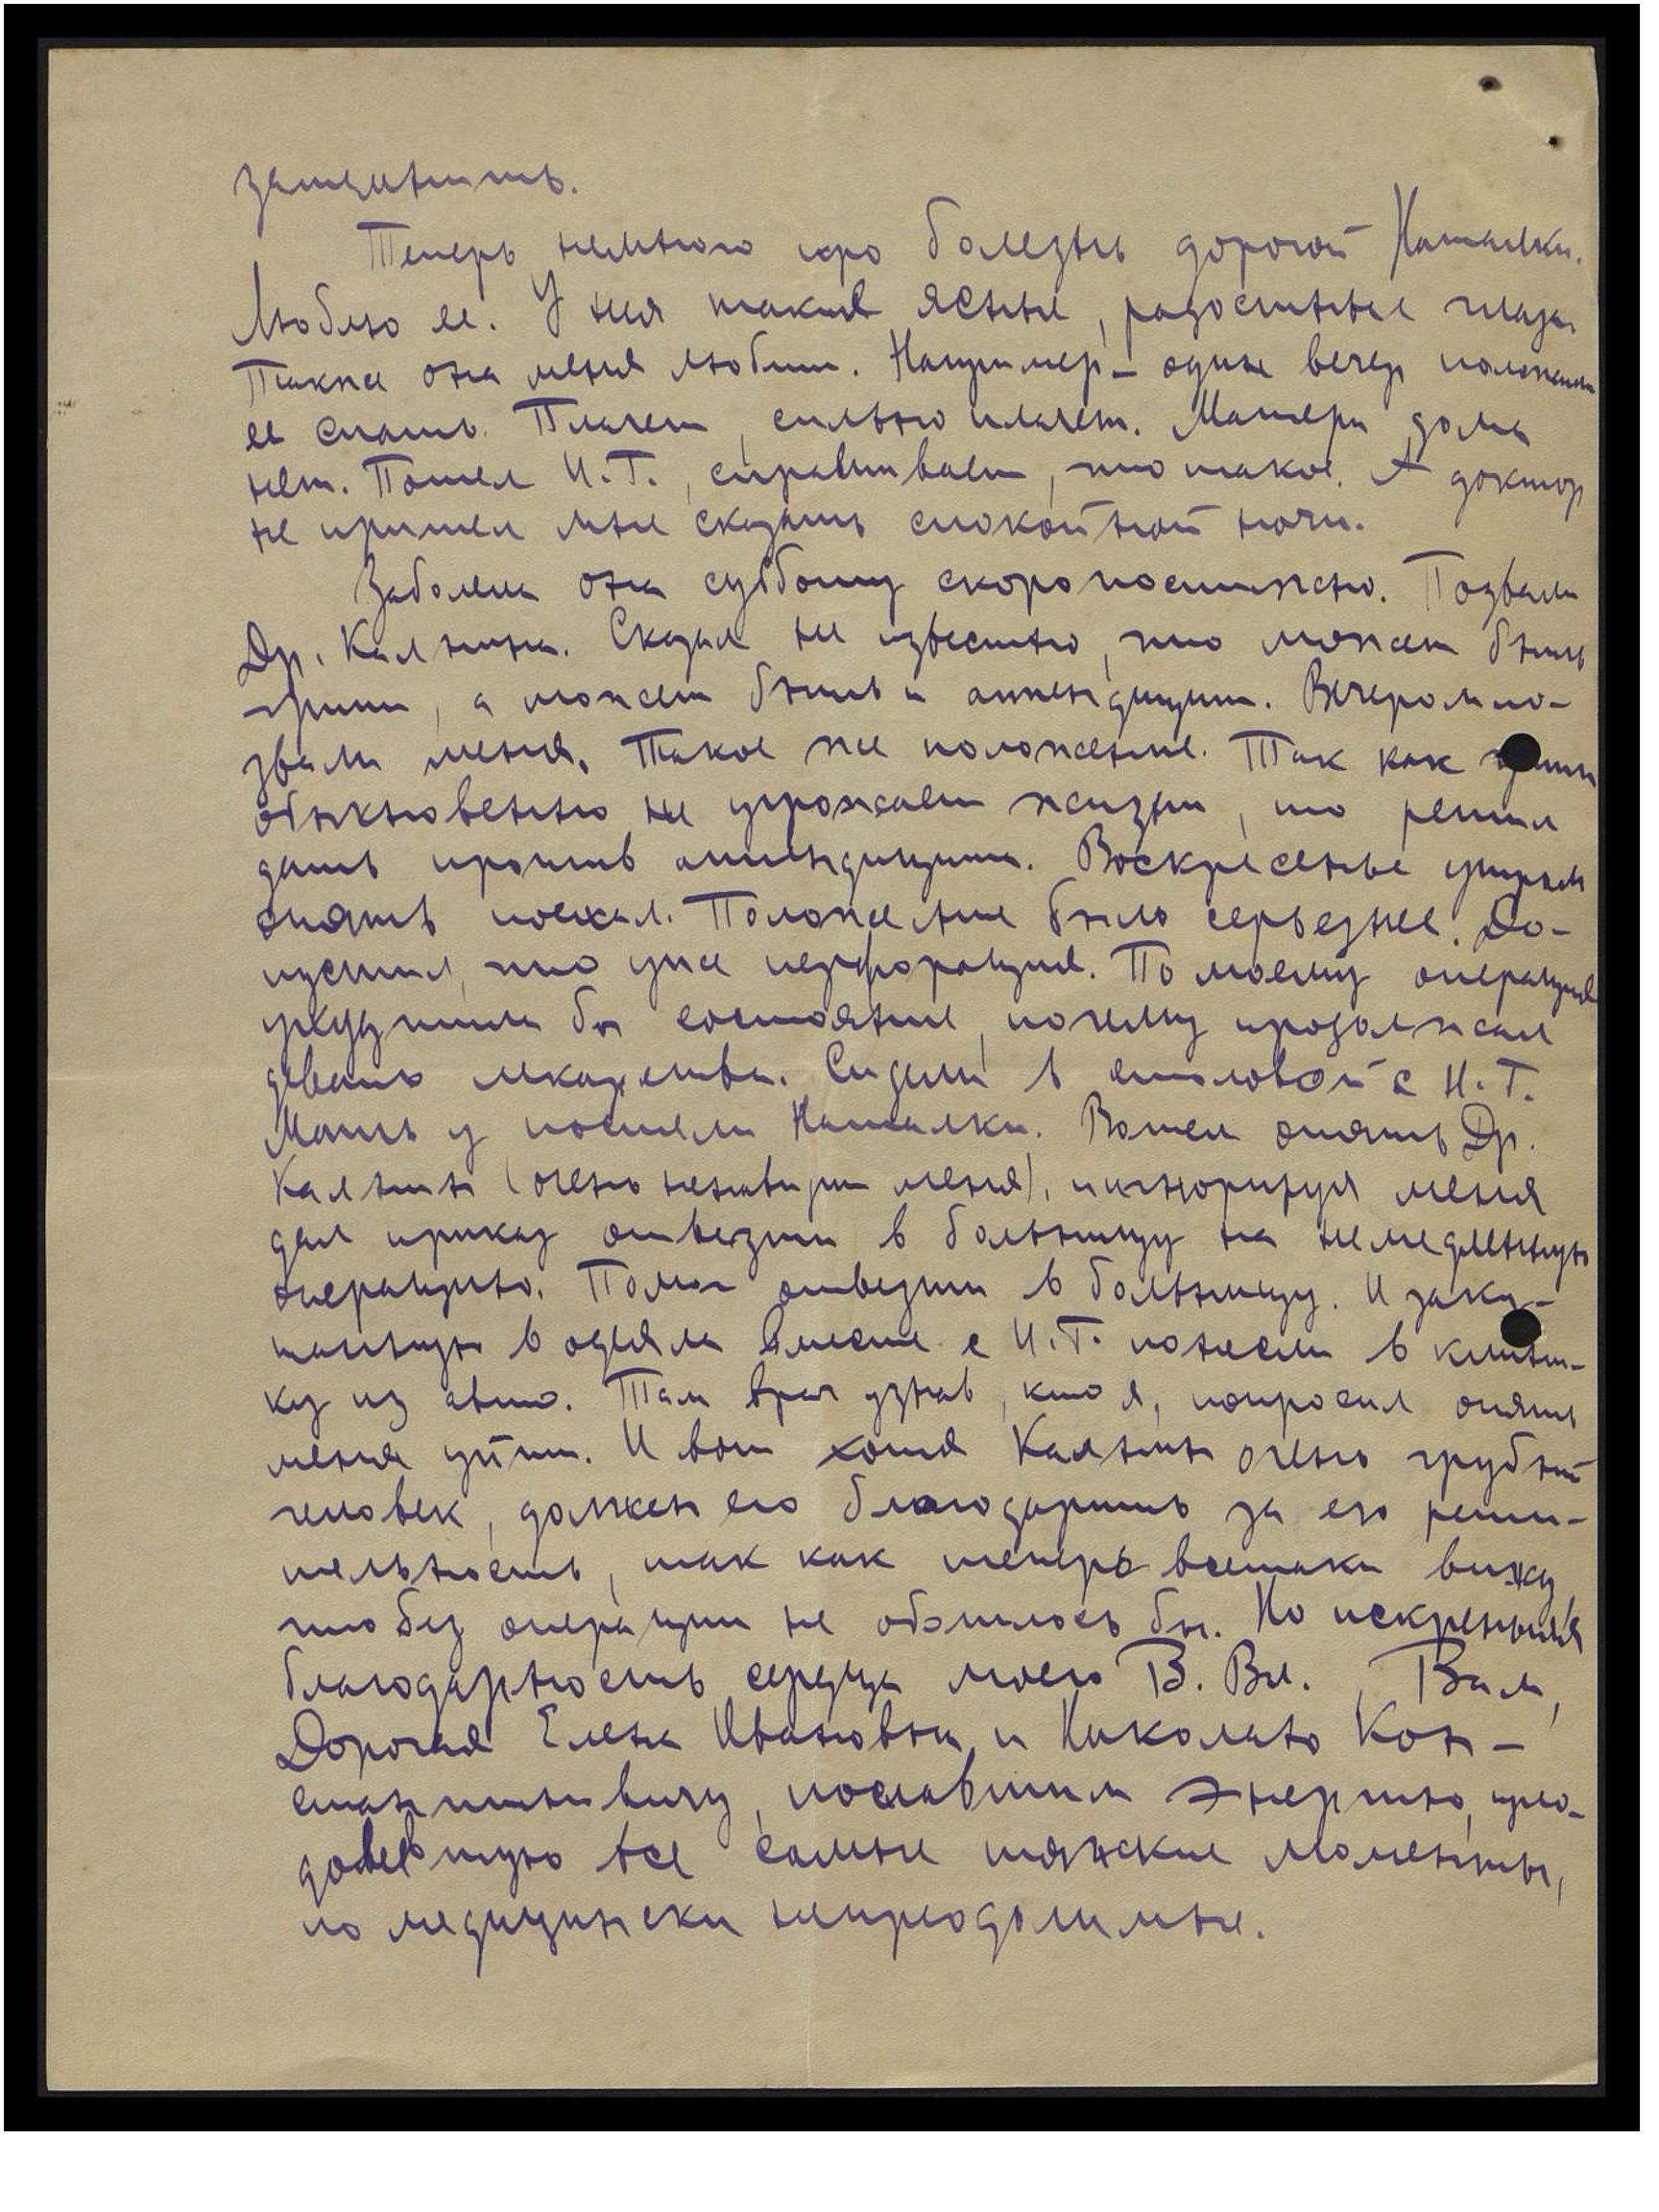 защитить.
Теперь немного про болезнь дорогой Наталки.
Люблю ее. У нея такия ясныя, радостные глаза.
Также она меня любит. Например – один вечер положили
ее спать. Плачет, сильно плачет. Матери дома
нет. Пошел И.Г., спрашивает, что такое. А доктор
не пришел мне сказать спокойной ночи.
Заболела она субботу скоропостижно. Позвали
Др. Калнина. Сказал не известно, что может быть
грипп, а может быть и аппендицит. Вечером по-
звали меня. Такое же положение. Так как грипп
обыкновенно не угрожает жизни, то решил
дать против аппендицита. Воскресенье утром
опять поехал. Положение было серьезнее. До-
пустил, что уже перфорация. По моему операция
ухудшила бы состояние, почему продолжал
давать лекарства. Сидели в столовой с И.Г.
Мать у постели Наталки. Вошел опять Др.
Калнин (очень ненавидит меня), игнорируя меня
дал приказ отвезти в больницу на немедленную
операцию. Помог отвезти в больницу. И заку-
танную в одеяла вместе с И.Г. понесли в клини-
ку из авто. Там врач узнав, кто я, попросил опять
меня уйти. И вот хотя Калнин очень грубый
человек, должен его благодарить за его реши-
тельность, так как теперь всетаки вижу
что без операции не обошлось бы. Но искренняя
благодарность сердца моего В. Вл., Вам,
Дорогая Елена Ивановна и Николаю Кон-
стантиновичу, пославшим энергию, прео-
долевшую все самые тяжские моменты,
по медицински непреодолимые.